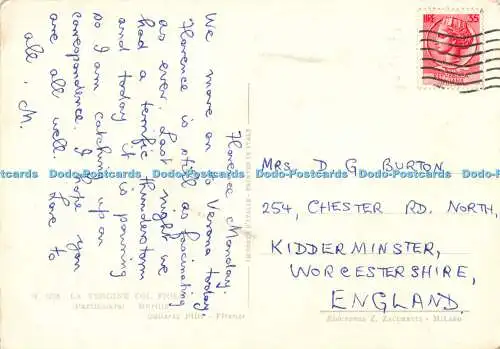 Florence Monday.
We move on to Verona today.
"Florence is still as fascinating
as ever. Last night we
had a terrific thunderstorm
and today it is pouring
so I am catching up on
correspondence. I hope you
are all well. Love to
all. M.
LIRE 35
MRS. D G BURTON
254, CHESTER RD. NORTH,
KIDDERMINSTER,
WORCESTERSHIRE,
ENGLAND.
LA VERGINE COL FIGLIO
Galleria Pitti - Firenze
MILANO
Dodo-Postcards Dodo-Postcards Dodo-Postcards Dodo-Postcards Dodo-Postcards